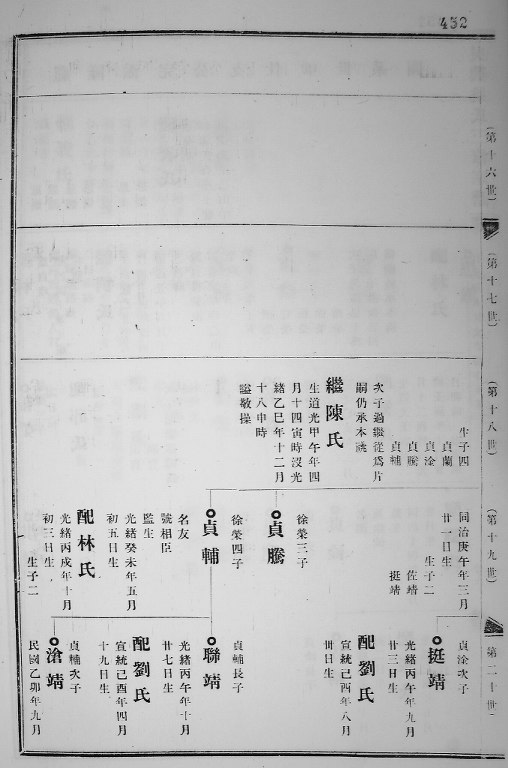 432
(第十六世)
(第十七世)
(第十八世)
生子四
貞蘭
貞淦
貞騰
貞輔
次子過繼從爲片
嗣仍承本祧
繼陳氏
生道光甲午年四
月十四寅時沒光
緒乙巳年十二月
十八申時
謚敬操
(第十九世)
同治庚午年三月
廿一日生
生子二
佐靖
挺靖
徐榮三子
貞騰
徐榮四子
貞輔
名友
號相臣
監生
光緒癸未年五月
初五日生
配林氏
光緒丙戌年十月
初三日生
生子二
第二十世
貞淦次子
挺靖
光緒丙午年九月
廿三日生
配劉氏
宣統己酉年八月
卅日生
貞輔長子
聯靖
光緒丙午年十月
廿七日生
配劉氏
宣統己酉年四月
十九日生
貞輔次子
滄靖
民國乙卯年九月